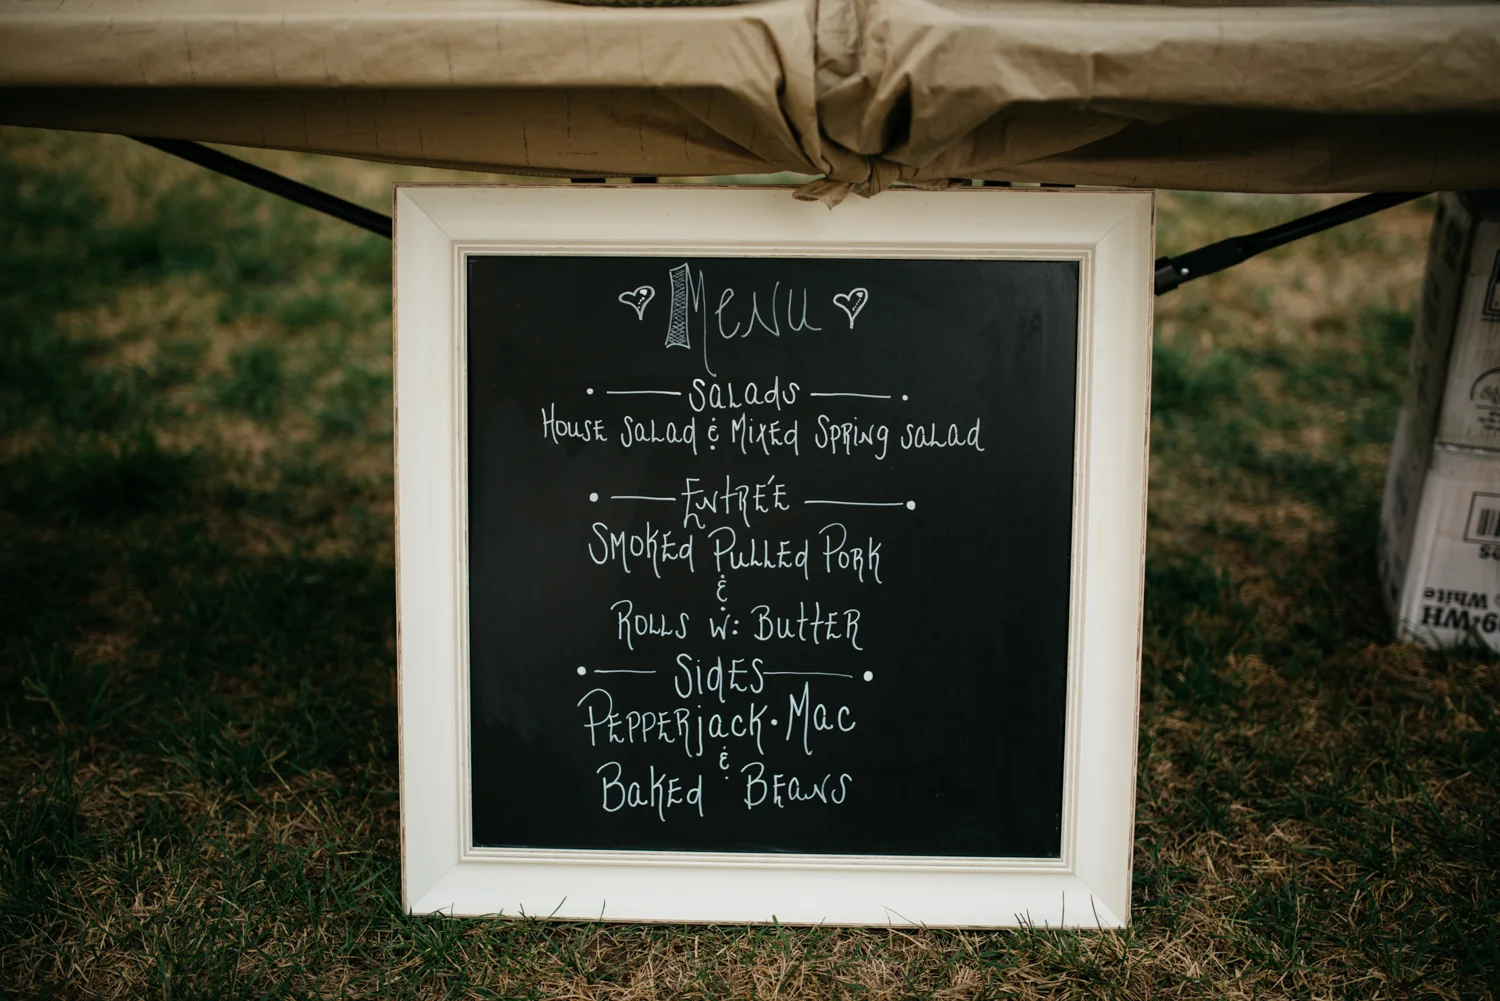 Menu
Salads
House Salad & Mixed Spring Salad
Entreé
Smoked Pulled Pork
&
Rolls w: Butter
Sides
Pepperjack · Mac
&
Baked Beans
White